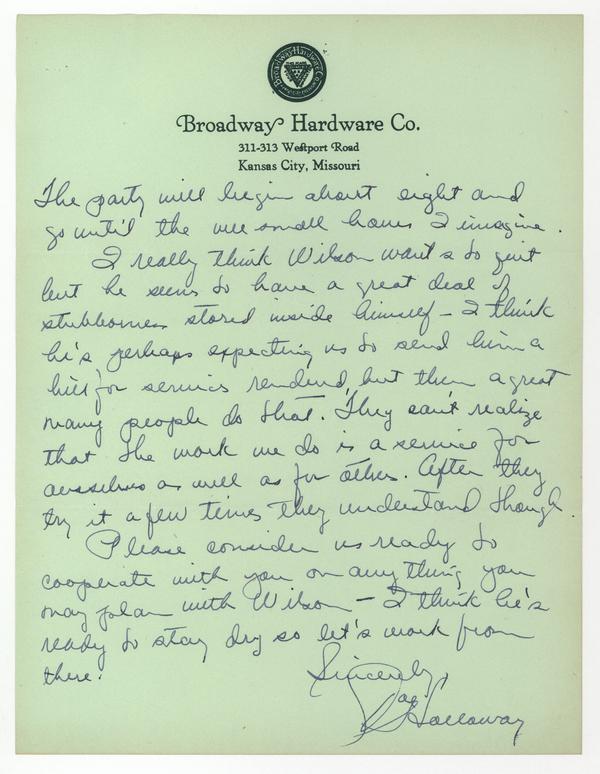 Broadway Hardware Co.
311-313 Westport Road
Kansas City, Missouri
The party will begin about eight and
go until the wee small hours I imagine.
I really think Wilson wants to quit
but he seems to have a great deal of
stubborness stored inside himself - I think
he's perhaps expecting us to send him a
bill for services rendered, but then a great
many people do that. They can't realize
that the work we do is a service for
ourselves as well as for others. After they
try it a few times they understand though.
Please consider us ready to
cooperate with you on anything you
may plan with Wilson - I think he's
ready to stay dry so let's work from
there.
Sincerely,
Holloway